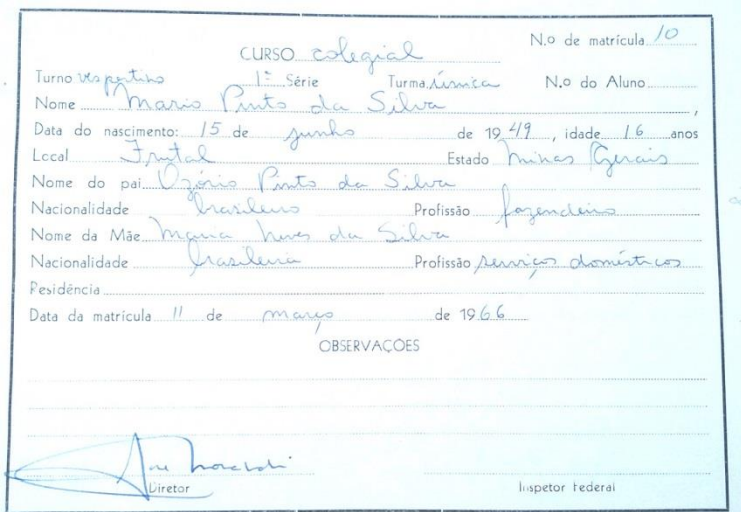 CURSO colegial N.o de matrícula 10
Turno vespertino 1ª Série Turma única N.o do Aluno
Nome Mario Pinto da Silva ,
Data do nascimento: 15 de junho de 1949 , idade 16 anos
Local Frutal Estado Minas Gerais
Nome do pai Ozório Pinto da Silva
Nacionalidade brasileiro Profissão fazendeiro
Nome da Mãe Maria Neves da Silva
Nacionalidade brasileira Profissão serviços domésticos
Residência
Data da matrícula 11 de março de 1966
OBSERVAÇÕES
Diretor Inspetor Federal